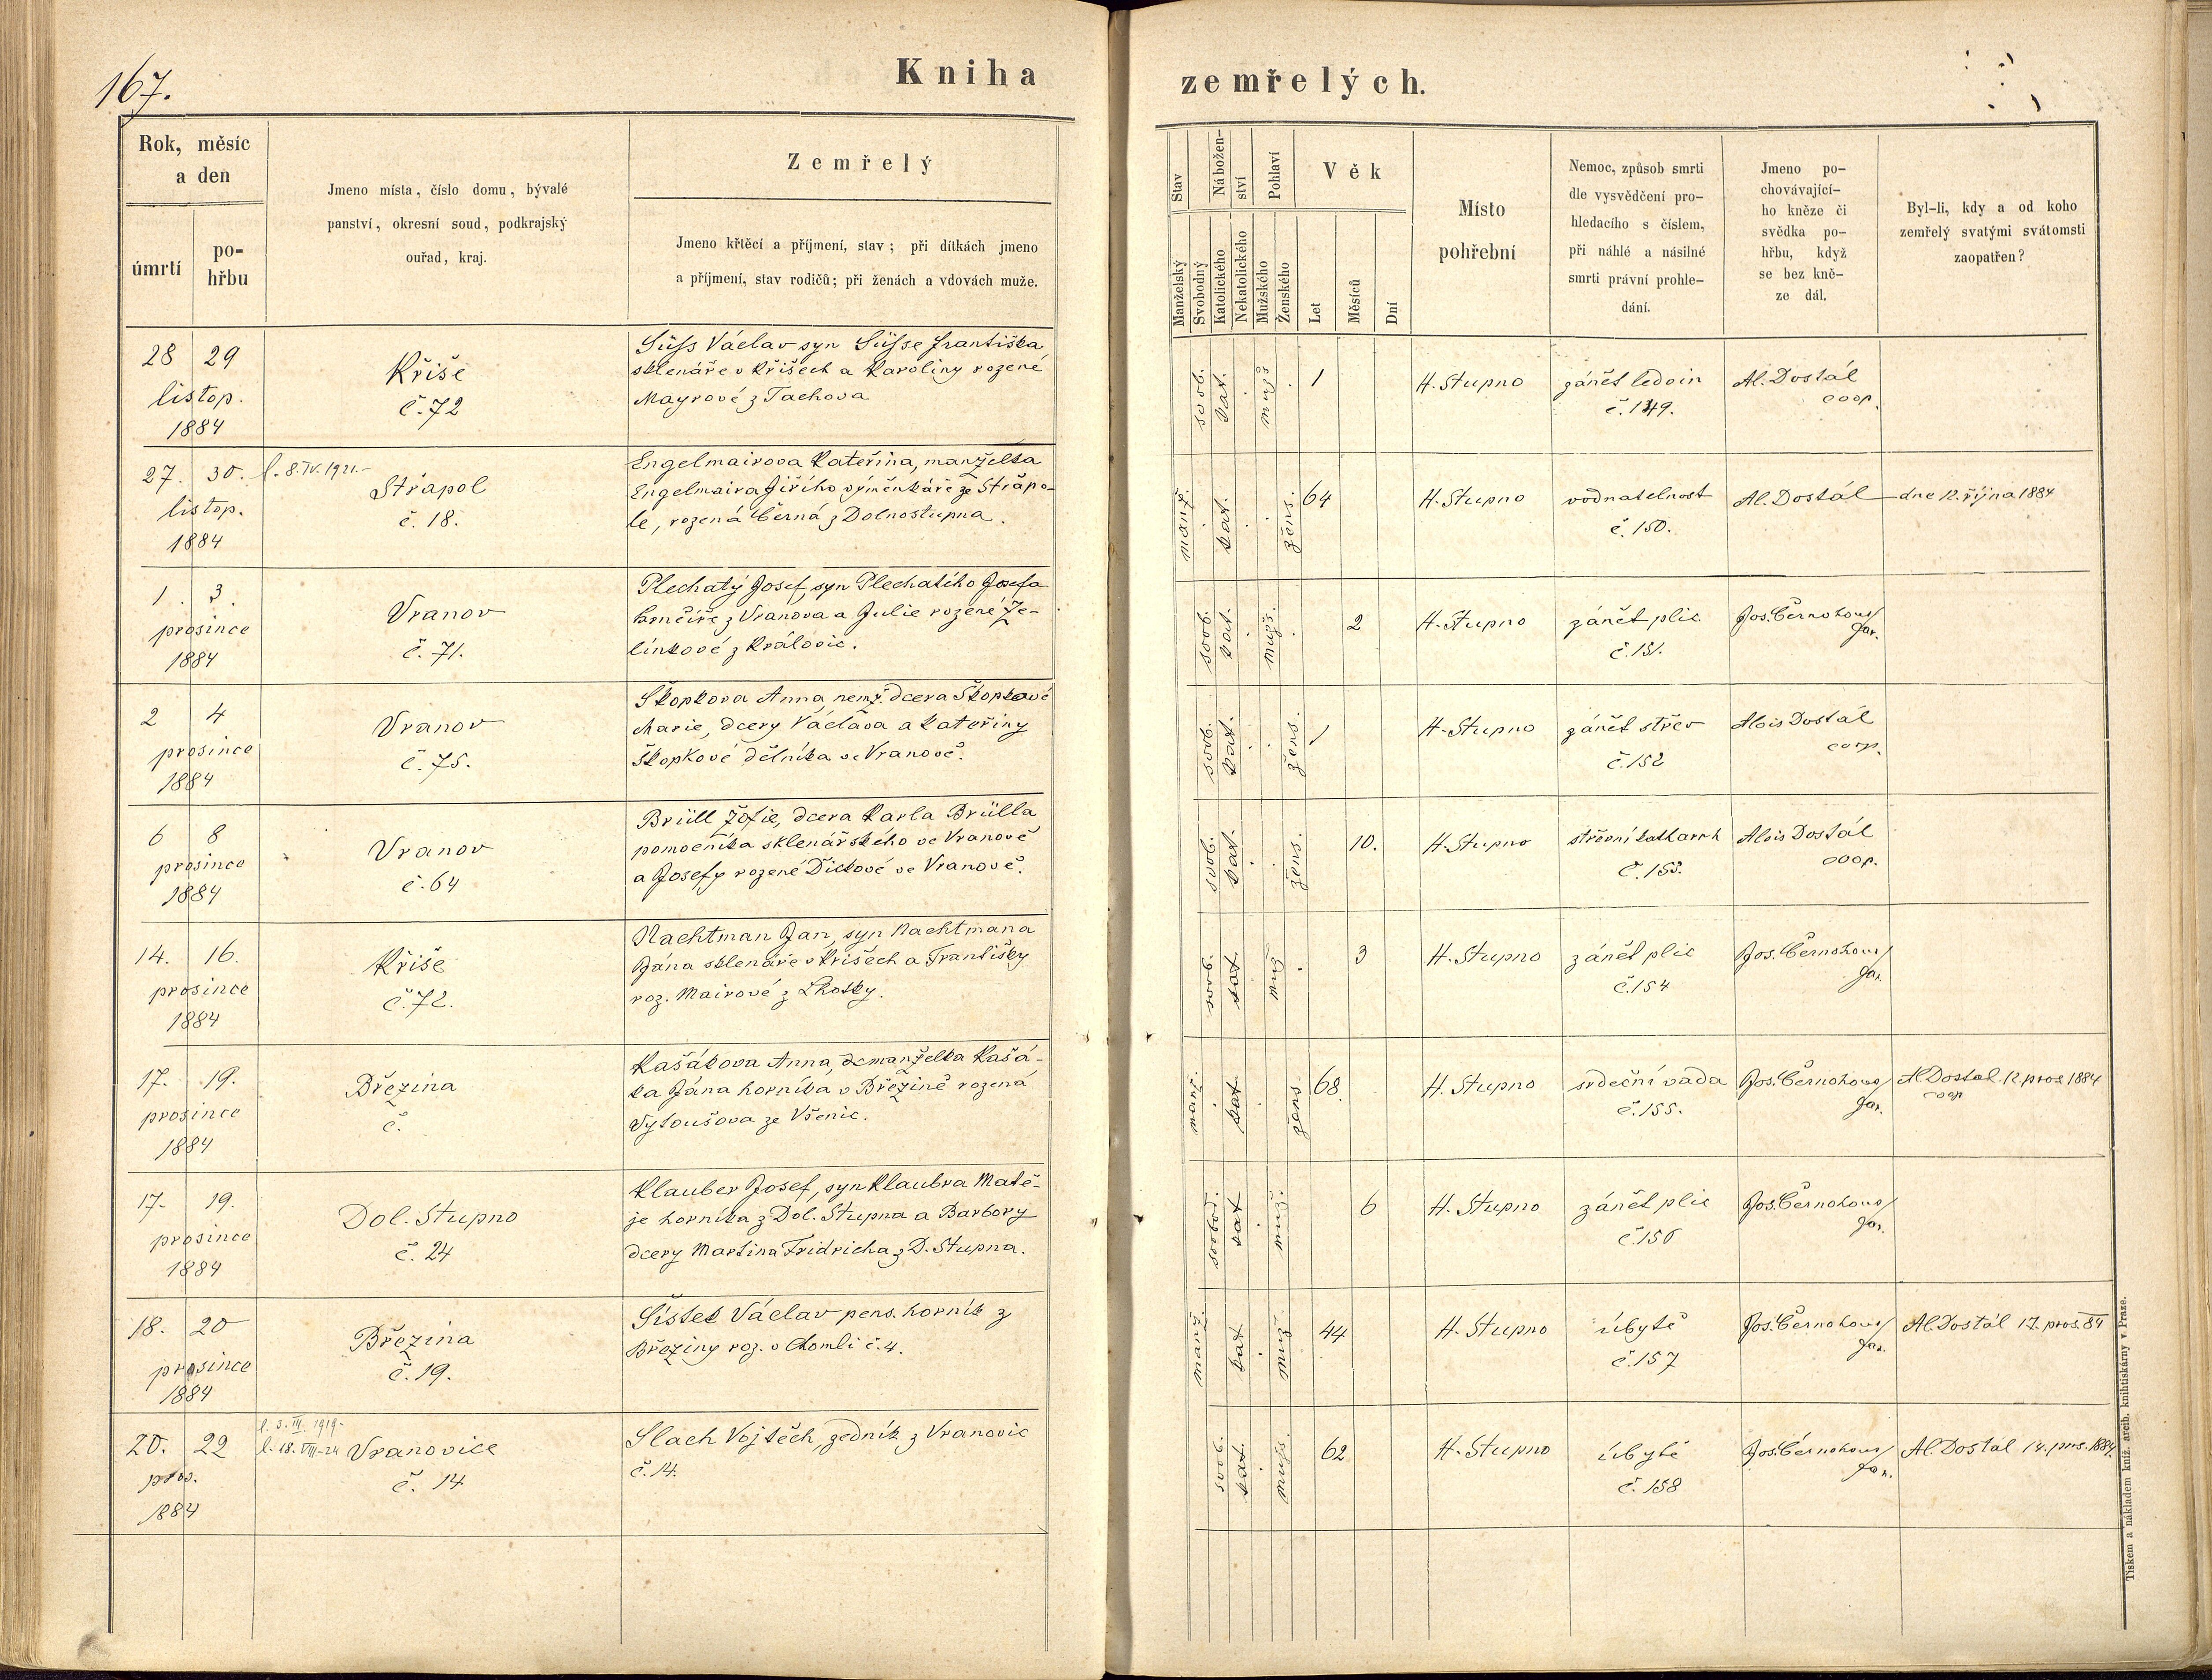 167.
Kniha
zemřelých.
Rok, měsíc
a den
úmrtí
po-
hřbu
Jmeno místa, číslo domu, bývalé
panství, okresní soud, podkrajský
ouřad, kraj.
Zemřelý
Jmeno křtěcí a příjmení, stav; při dítkách jmeno
a příjmení, stav rodičů; při ženách a vdovách muže.
Stav
Manželský
Svobodný
Nábožen-
ství
Katolického
Nekatolického
Pohlaví
Mužského
Ženského
Věk
Let
Měsíců
Dní
Místo
pohřební
Nemoc, způsob smrti
dle vysvědčení pro-
hledacího s číslem,
při náhlé a násilné
smrti právní prohle-
dání.
Jmeno po-
chovávající-
ho kněze či
svědka po-
hřbu, když
se bez kně-
ze dál.
Byl-li, kdy a od koho
zemřelý svatými svátomsti
zaopatřen?
28 29
listop.
1884
Křiše
č. 72
Süss Václav syn Süsse Františka
sklenáře v Křišech a Karoliny rozené
Mayrové z Tachova
svob. kat. mužs. 1
H. Stupno
zánět ledvin
č. 149.
Al. Dostál
coop.
27. 30.
listop.
1884
l. 8. IV. 1921.-
Střapol
č. 18.
Engelmairova Kateřina, manželka
Engelmaira Jiřího výměnkáře ze Střapo-
le, rozená Černá z Dolnostupna.
manž. kat. žens. 64
H. Stupno
vodnatelnost
č. 150.
Al. Dostál
dne 12. října 1884
1. 3.
prosince
1884
Vranov
č. 71.
Plechatý Josef, syn Plechatího Josefa
hrnčíře z Vranova a Julie rozené Že-
línkové z Královic.
svob. kat. mužs. 2
H. Stupno
zánět plic
č. 151.
Jos. Černohous
far.
2 4
prosince
1884
Vranov
č. 75.
Škopkova Anna, nemž. dcera Škopkové
Marie, dcery Václava a Kateřiny
Škopkové dělníka ve Vranově.
svob. kat. žens. 1
H. Stupno
zánět střev
č. 152
Alois Dostál
coop.
6 8
prosince
1884
Vranov
č. 64
Brüll Žofie, dcera Karla Brülla
pomocníka sklenářského ve Vranově
a Josefy rozené Dickové ve Vranově.
svob. kat. žens. 10.
H. Stupno
střevní katharrh
č. 153.
Alois Dostál
coop.
14. 16.
prosince
1884
Křiše
č. 72.
Nachtman Jan, syn Nachtmana
Jána sklenáře v Křišech a Františky
roz. Mairové z Lhotky.
svob. kat muž 3
H. Stupno
zánět plic
č. 154
Jos. Černohous
far.
17. 19.
prosince
1884
Březina
č.
Kašákova Anna, manželka Kašá-
ka Jána horníka v Březině rozená
Vytoušova ze Všenic.
manž. kat žens 68.
H. Stupno
srdeční vada
č. 155.
Jos. Černohous
far.
Al Dostal 12. pros 1884
coop
17. 19.
prosince
1884
Dol. Stupno
č. 24
Klauber Josef, syn Klaubra Matě-
je horníka z Dol. Stupna a Barbory
dcery Martina Fridricha z D. Stupna.
svobod. kat muž. 6
H. Stupno
zánět plic
č. 156
Jos. Černohous
far.
18. 20
prosince
1884
Březina
č. 19.
Šístek Václav pens. horník z
Březiny roz. v Chomli č. 4.
manž. kat muž 44
H. Stupno
úbytě
č. 157
Jos. Černohous
far.
Al. Dostál 17. pros. 84
20. 22
pros.
1884
l. 3. III. 1919-
l. 18. VIII-24
Vranovice
č. 14
Slach Vojtěch, zedník z Vranovic
č. 14.
svob. kat. mužs. 62
H. Stupno
úbytě
č. 158
Jos. Černohous
far.
Al. Dostál 14. pros. 1884.
Tiskem a nákladem kníž. arcib. knihtiskárny v Praze.